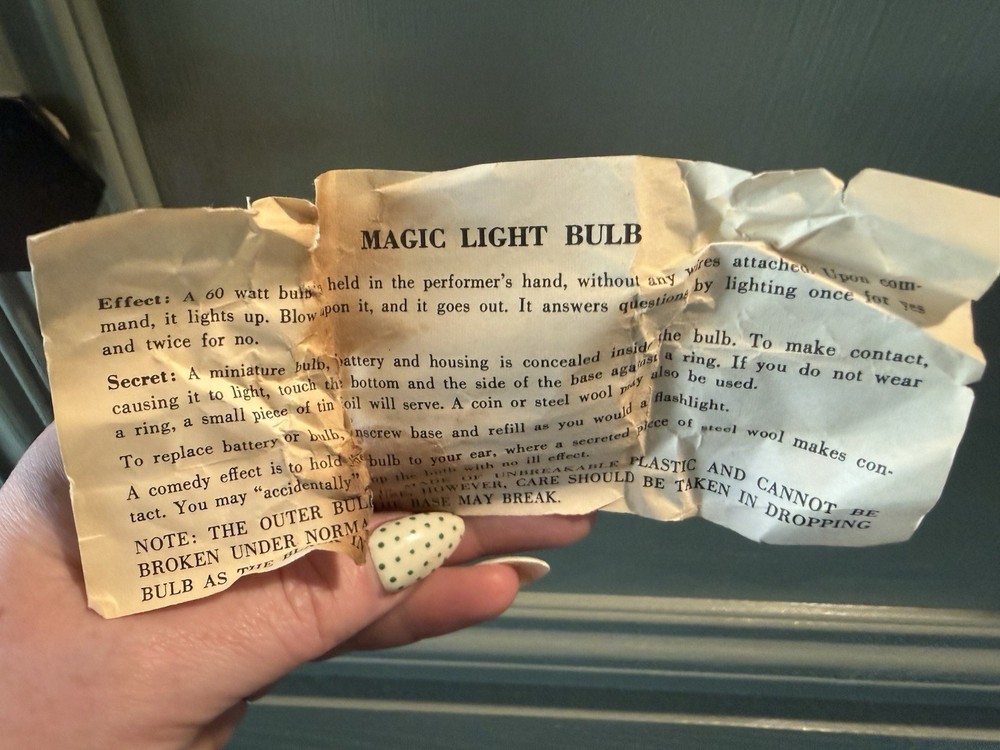 MAGIC LIGHT BULB
Effect: A 60 watt bulb held in the performer's hand, without any wires attached. Upon com-
mand, it lights up. Blow upon it, and it goes out. It answers questions by lighting once for yes
and twice for no.
Secret: A miniature bulb, battery and housing is concealed inside the bulb. To make contact,
causing it to light, touch the bottom and the side of the base against a ring. If you do not wear
a ring, a small piece of tin foil will serve. A coin or steel wool may also be used.
To replace battery or bulb, unscrew base and refill as you would a flashlight.
A comedy effect is to hold the bulb to your ear, where a secreted piece of steel wool makes con-
tact. You may "accidentally" the bulb with no ill effect.
NOTE: THE OUTER BULB MADE OF UNBREAKABLE PLASTIC AND CANNOT BE
BROKEN UNDER NORMAL HOWEVER, CARE SHOULD BE TAKEN IN DROPPING
BULB AS THE BASE MAY BREAK.